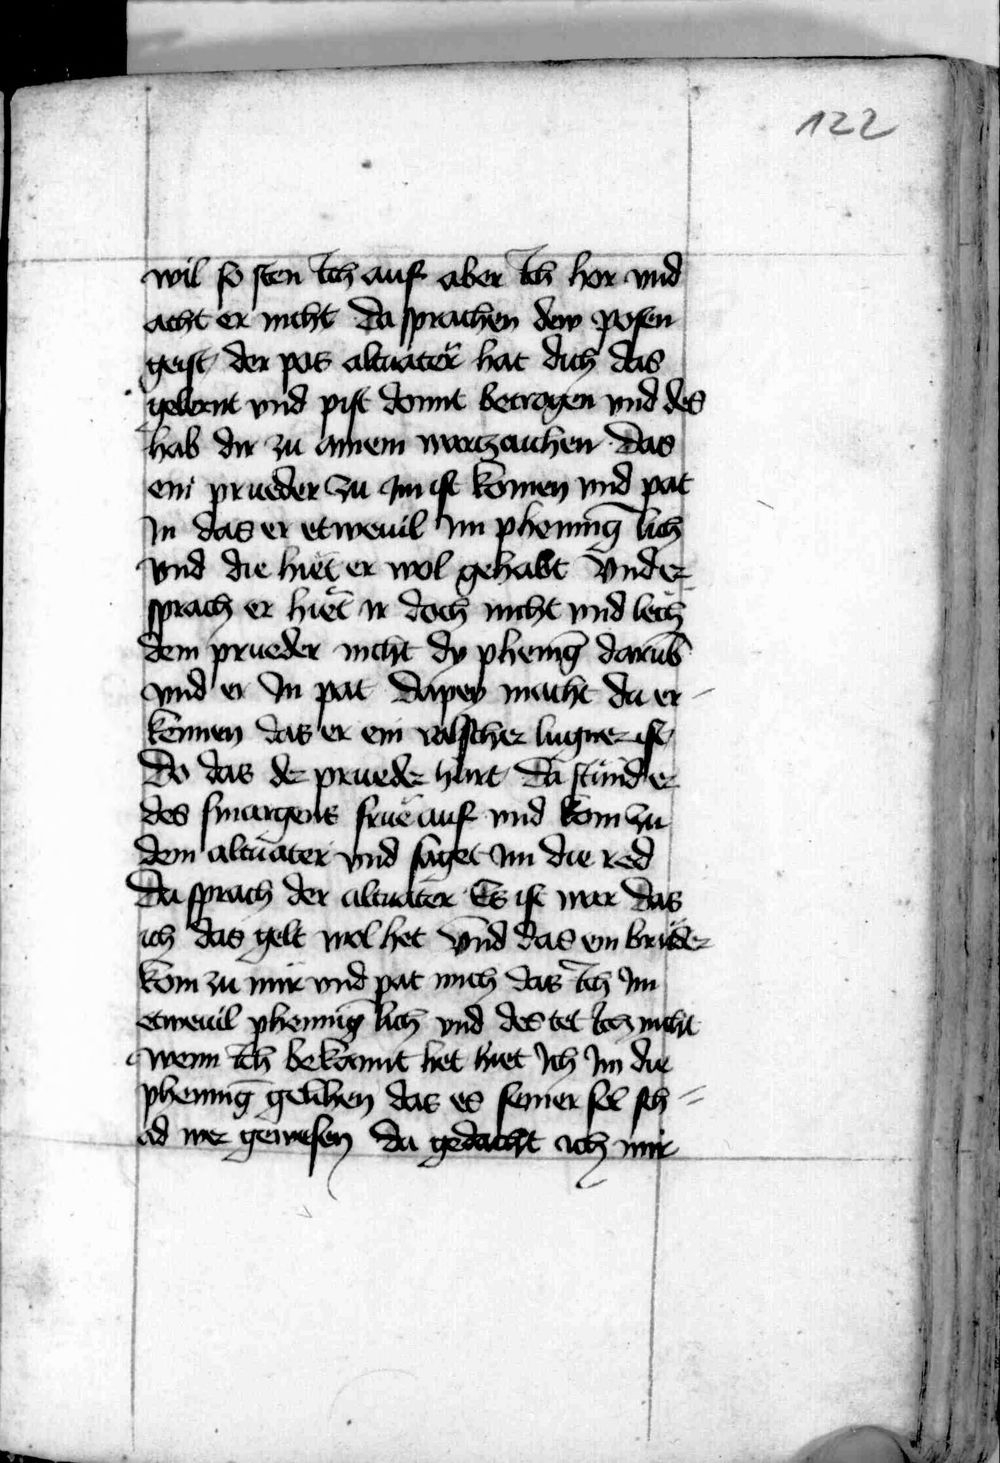 122
wil so sten Ich auf aber Ich hor vnd
acht er nicht Da sprachen dew posen
geist der pos altuater hat dich das
gelernt vnd pist domit betrogen vnd des
hab dir zu ainem warzaichen Das
ein prueder zu Im ist komen vnd pat
In das er etweuil Im pheninḡ lich
vnd die hiet er wol gehabt Vnd er
sprach er hiet ir doch nicht vnd lech
dem prueder nicht dy pheniḡ darub̄
vnd er In pat Dapey macht du er-
kennen das er ein valscher lugner ist
Do das der prueder hort Da stund er
des smargens frue auf vnd kom zu
dem altuater vnd saget Im die red
Da sprach der altuater Es ist war das
ich das gelt wol het Vnd das ein brüder
kom zu mir vnd pat mich das Ich Im
etweuil pheninḡ lich vnd des tet Ich nicht
wenn Ich bekannt het hiet Ich Im die
pheninḡ gelihen das es seiner sel sch=
ad wer gewesen Da gedacht ich mir